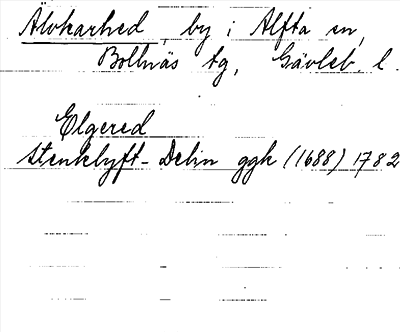 Älvkarhed, by i Alfta sn,
Bollnäs tg, Gävleb. l.
Elgered
Stenklyft-Delin ggk (1688) 1782